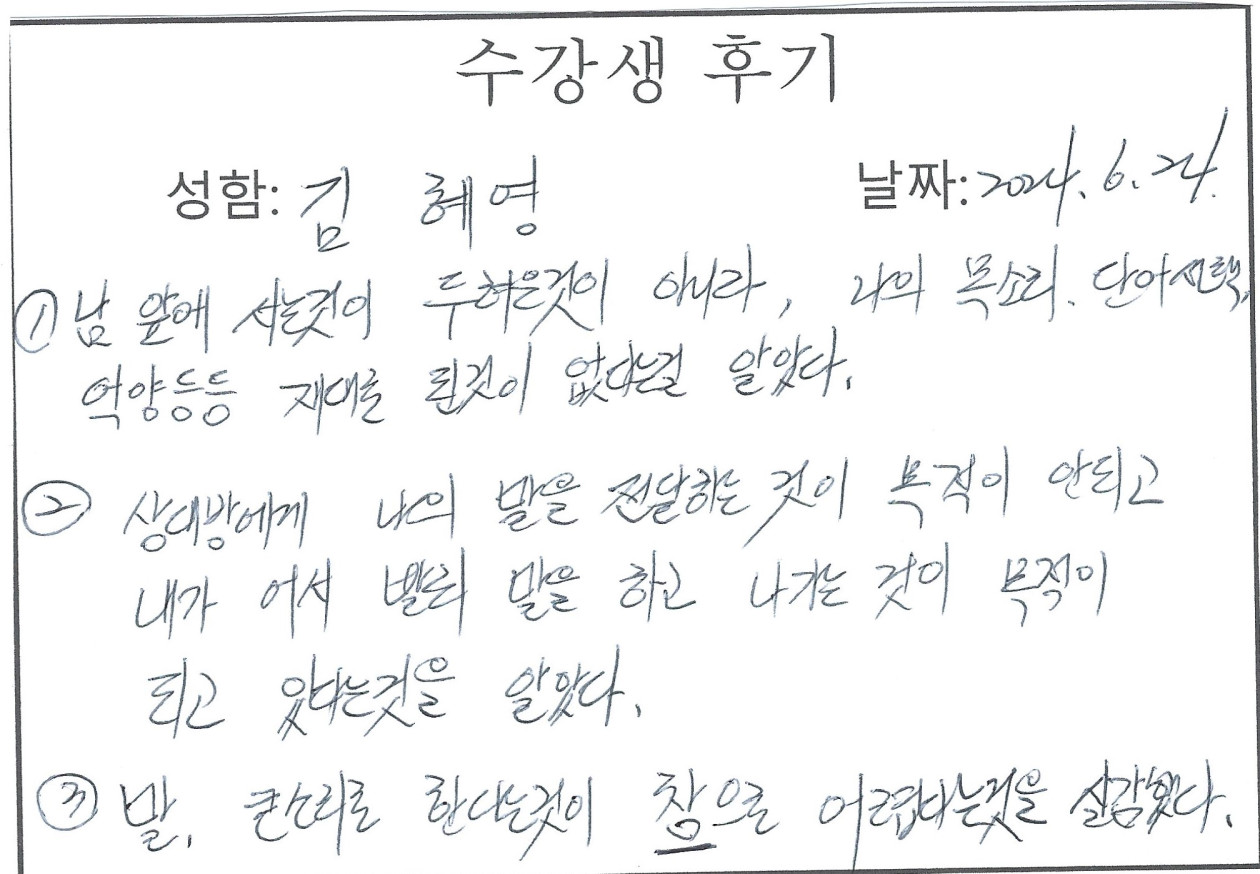 수강생 후기
성함: 김 혜영 날짜: 2024. 6. 24.
① 남 앞에 서는것이 두려운것이 아니라, 나의 목소리. 단어선택,
억양등등 재대로 된것이 없다는걸 알았다.
② 상대방에게 나의 말을 전달하는 것이 목적이 안되고
내가 어서 빨리 말을 하고 나가는 것이 목적이
되고 있다는것을 알았다.
③ 말. 큰소리로 한다는것이 참으로 어렵다는것을 실감했다.